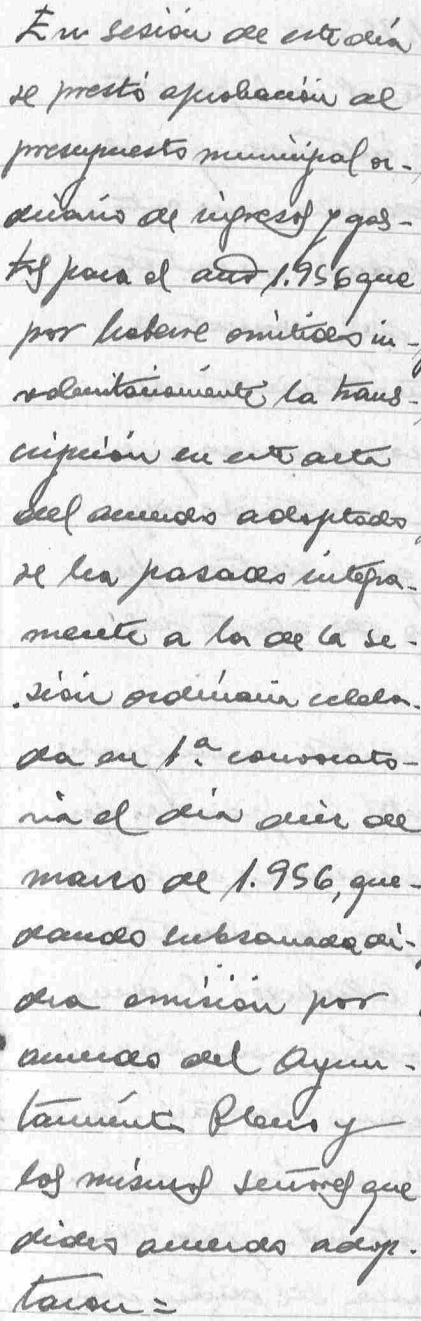 En sesión de este día
se prestó aprobación al
presupuesto municipal or-
dinario de ingresos y gas-
tos para el año 1.956 que
por haberse omitido in-
voluntariamente la trans-
cripción en este acta
del acuerdo adoptado
se ha pasado íntegra-
mente a la de la se-
sión ordinaria celebra-
da en 1ª. convocato-
ria el día diez de
marzo de 1.956, que-
dando subsanada di-
cha omisión por
acuerdo del Ayun-
tamiento Pleno y
los mismos señores que
dicho acuerdo adop-
taron =